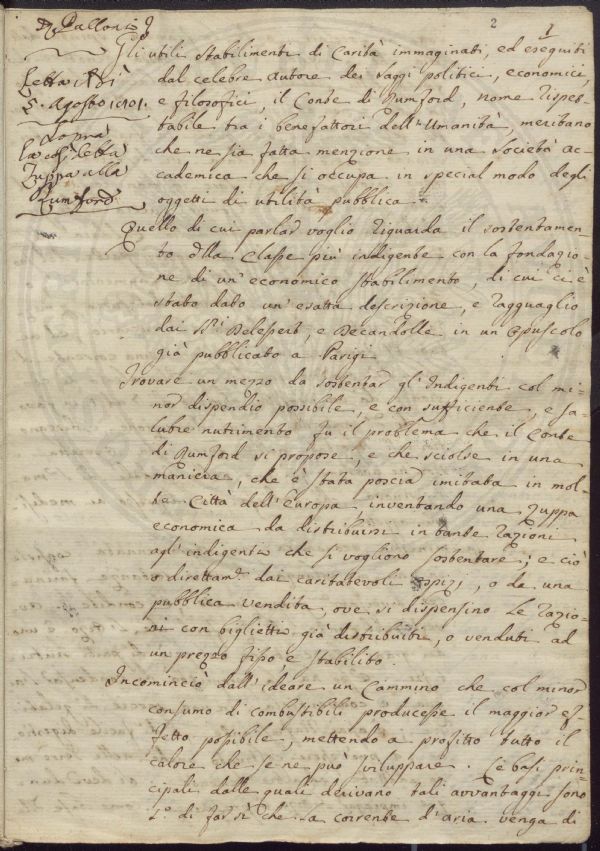 2 1
D. Palloni
Letta il dì
5. Agosto 1801.
Sopra
la così detta
Zuppa alla
Rumford
Gli utili stabilimenti di Carità immaginati, ed eseguiti
dal celebre autore dei saggi politici, economici,
e filosofici, il Conte di Rumford, nome rispet-
tabile tra i benefattori dell'Umanità, meritano
che ne sia fatta menzione in una Società ac-
cademica che si occupa in special modo degli
oggetti di utilità pubblica.
Quello di cui parlar voglio riguarda il sostentamen-
to della Classe più indigente con la fondazio-
ne di un'economico stabilimento, di cui ci è
stato dato un'esatta descrizione, e ragguaglio
dai SS.ri Delessert, e Decandolle in un Opuscolo
già pubblicato a Parigi
Trovare un mezzo da sostentar gl'Indigenti col mi-
nor dispendio possibile, e con sufficiente, e sa-
lubre nutrimento fu il problema che il Conte
di Rumford si propose, e che sciolse in una
maniera, che è stata poscia imitata in mol-
te Città dell'Europa inventando una zuppa
economica da distribuirsi in tante razioni
agl'indigenti che si vogliono sostentare; e ciò
o direttam.e dai caritatevoli ospizj, o da una
pubblica vendita, ove si dispensino le razio-
ni con biglietti già distribuiti, o venduti ad
un prezzo fisso e stabilito.
Incominciò dall'ideare un Cammino che col minor
consumo di combustibili producesse il maggior ef-
fetto possibile, mettendo a profitto tutto il
calore che se ne può sviluppare. Le basi prin-
cipali dalle quali derivano tali avvantaggi sono
1.o di far sì che la corrente d'aria venga di